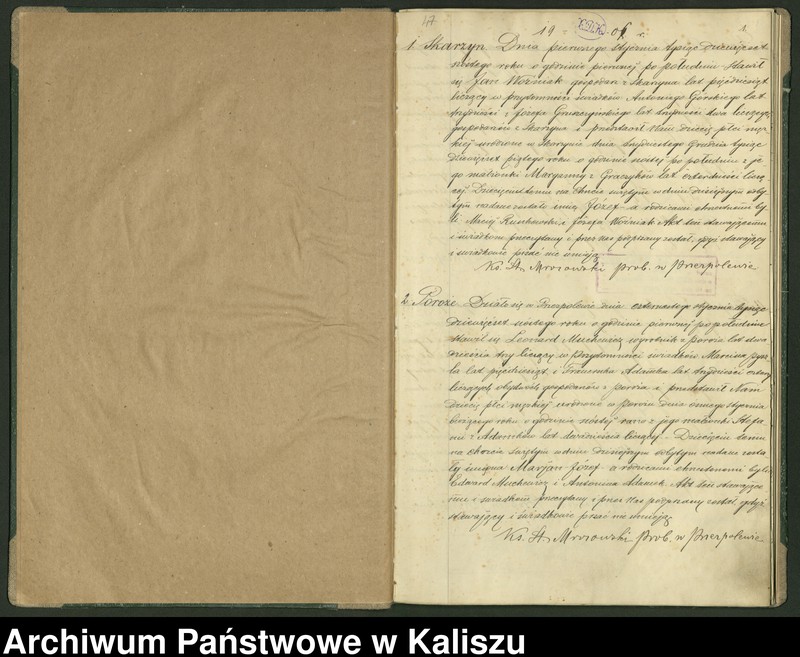 17
19 06 r. 1.
1 Skarzyn Dnia pierwszego Stycznia tysiąc dziewięćset
szóstego roku o godzinie pierwszej po południu stawił
się Jan Woźniak gospodarz z Skarzyna lat pięćdziesiąt
liczący w przytomności świadków Antoniego Górskiego lat
trzydzieści i Józefa lat trzydzieści dwa liczących
gospodarzów z Skarzyna i przedstawił Nam dziecię płci męz
kiej urodzone w Skarzynie dnia trzydziestego Grudnia tysiąc
dziewięćset piątego roku o godzinie szóstej po południu z je
go małżonki Maryanny z Graczyków lat czterdzieści licz
ącej. Dziecięciu temu na Chrzcie świętym w dniu dzisiejszym odby
tym nadane zostało imię Józef a rodzicami chrzestnemi by
li Maciej i Józefa Woźniak Akt ten stawającemu
i świadkom przeczytany i przez Nas podpisany został, gdyż stawający
i świadkowie pisać nie umieją
Ks. St. Mrozowski prob. w
2 Poroże Działo się w dnia czternastego stycznia tysiąc
dziewięćset szóstego roku o godzinie pierwszej po południu
stawił się Leonard Muchowicz wyrobnik z Poroża lat dwa
dzieścia trzy liczący w Przytomności świadków Marcina
lat pięćdziesiąt i Franciszka Adamka lat trzydzieści cztery
liczących obydwóch gospodarzów z Poroża i przedstawił Nam
dziecię płci męzkiej urodzone w Porożu dnia stycznia
bieżącego roku o godzinie szóstej rano z jego małżonki Stefa
nii z Adamków lat dwadzieścia liczącej. Dziecięciu temu
na chrzcie świętym w dniu dzisiejszym odbytym nadane zosta
ły imiona Maryan Józef a rodzicami chrzestnemi byli
Edward Muchowicz i Antonina Adamek. Akt ten stawające
mu i świadkom przeczytany i przez Nas podpisany został gdyż
stawający i świadkowie pisać nie umieją
Ks. St. Mrozowski prob. w
Archiwum Państwowe w Kaliszu